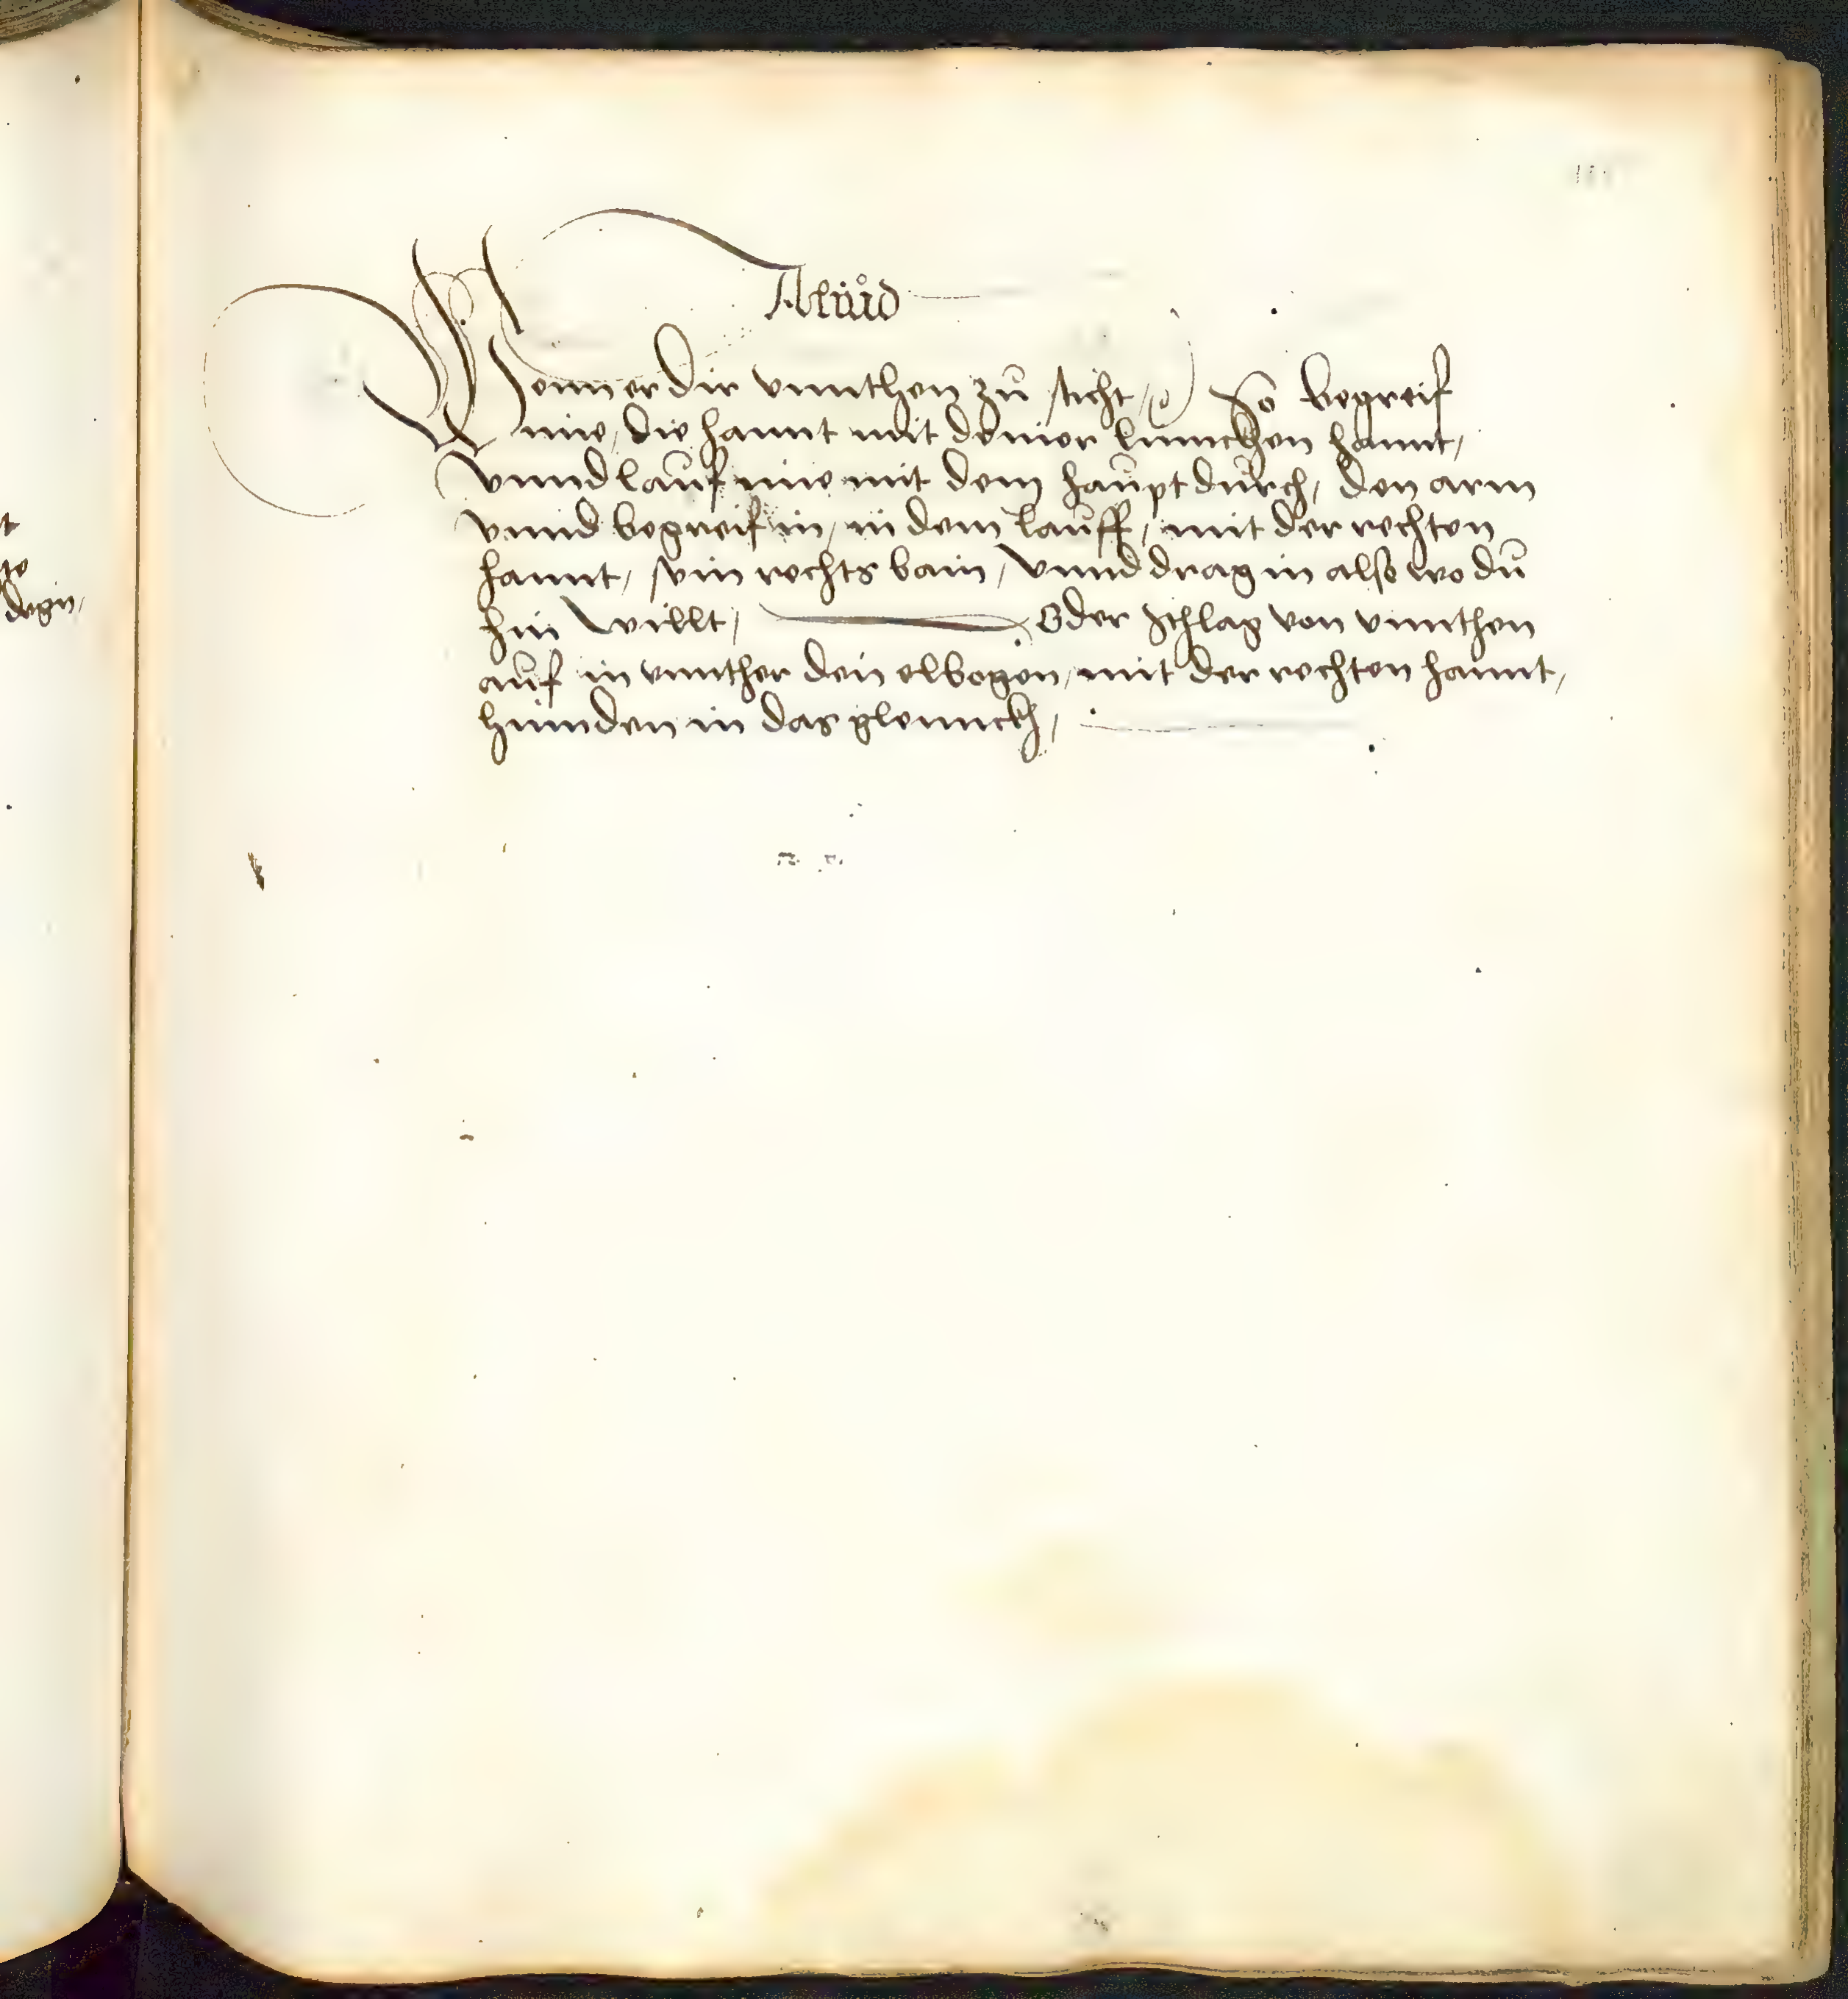 Aliud
Wenn er dir vnnthen zů sticht, So begreif
ime, die hannt mit deiner linncken hannt,
vnnd lauf ime mit dem haupt durch, den arm
vnnd begreif in, in dem lauff, mit der rechten
hannt, sein rechts bain, Vnnd drag in also wo du
hin willt, Oder schlag von vnnthen
auf in vnnther den elbogen, mit der rechten hannt,
hinnden in das glennckh,